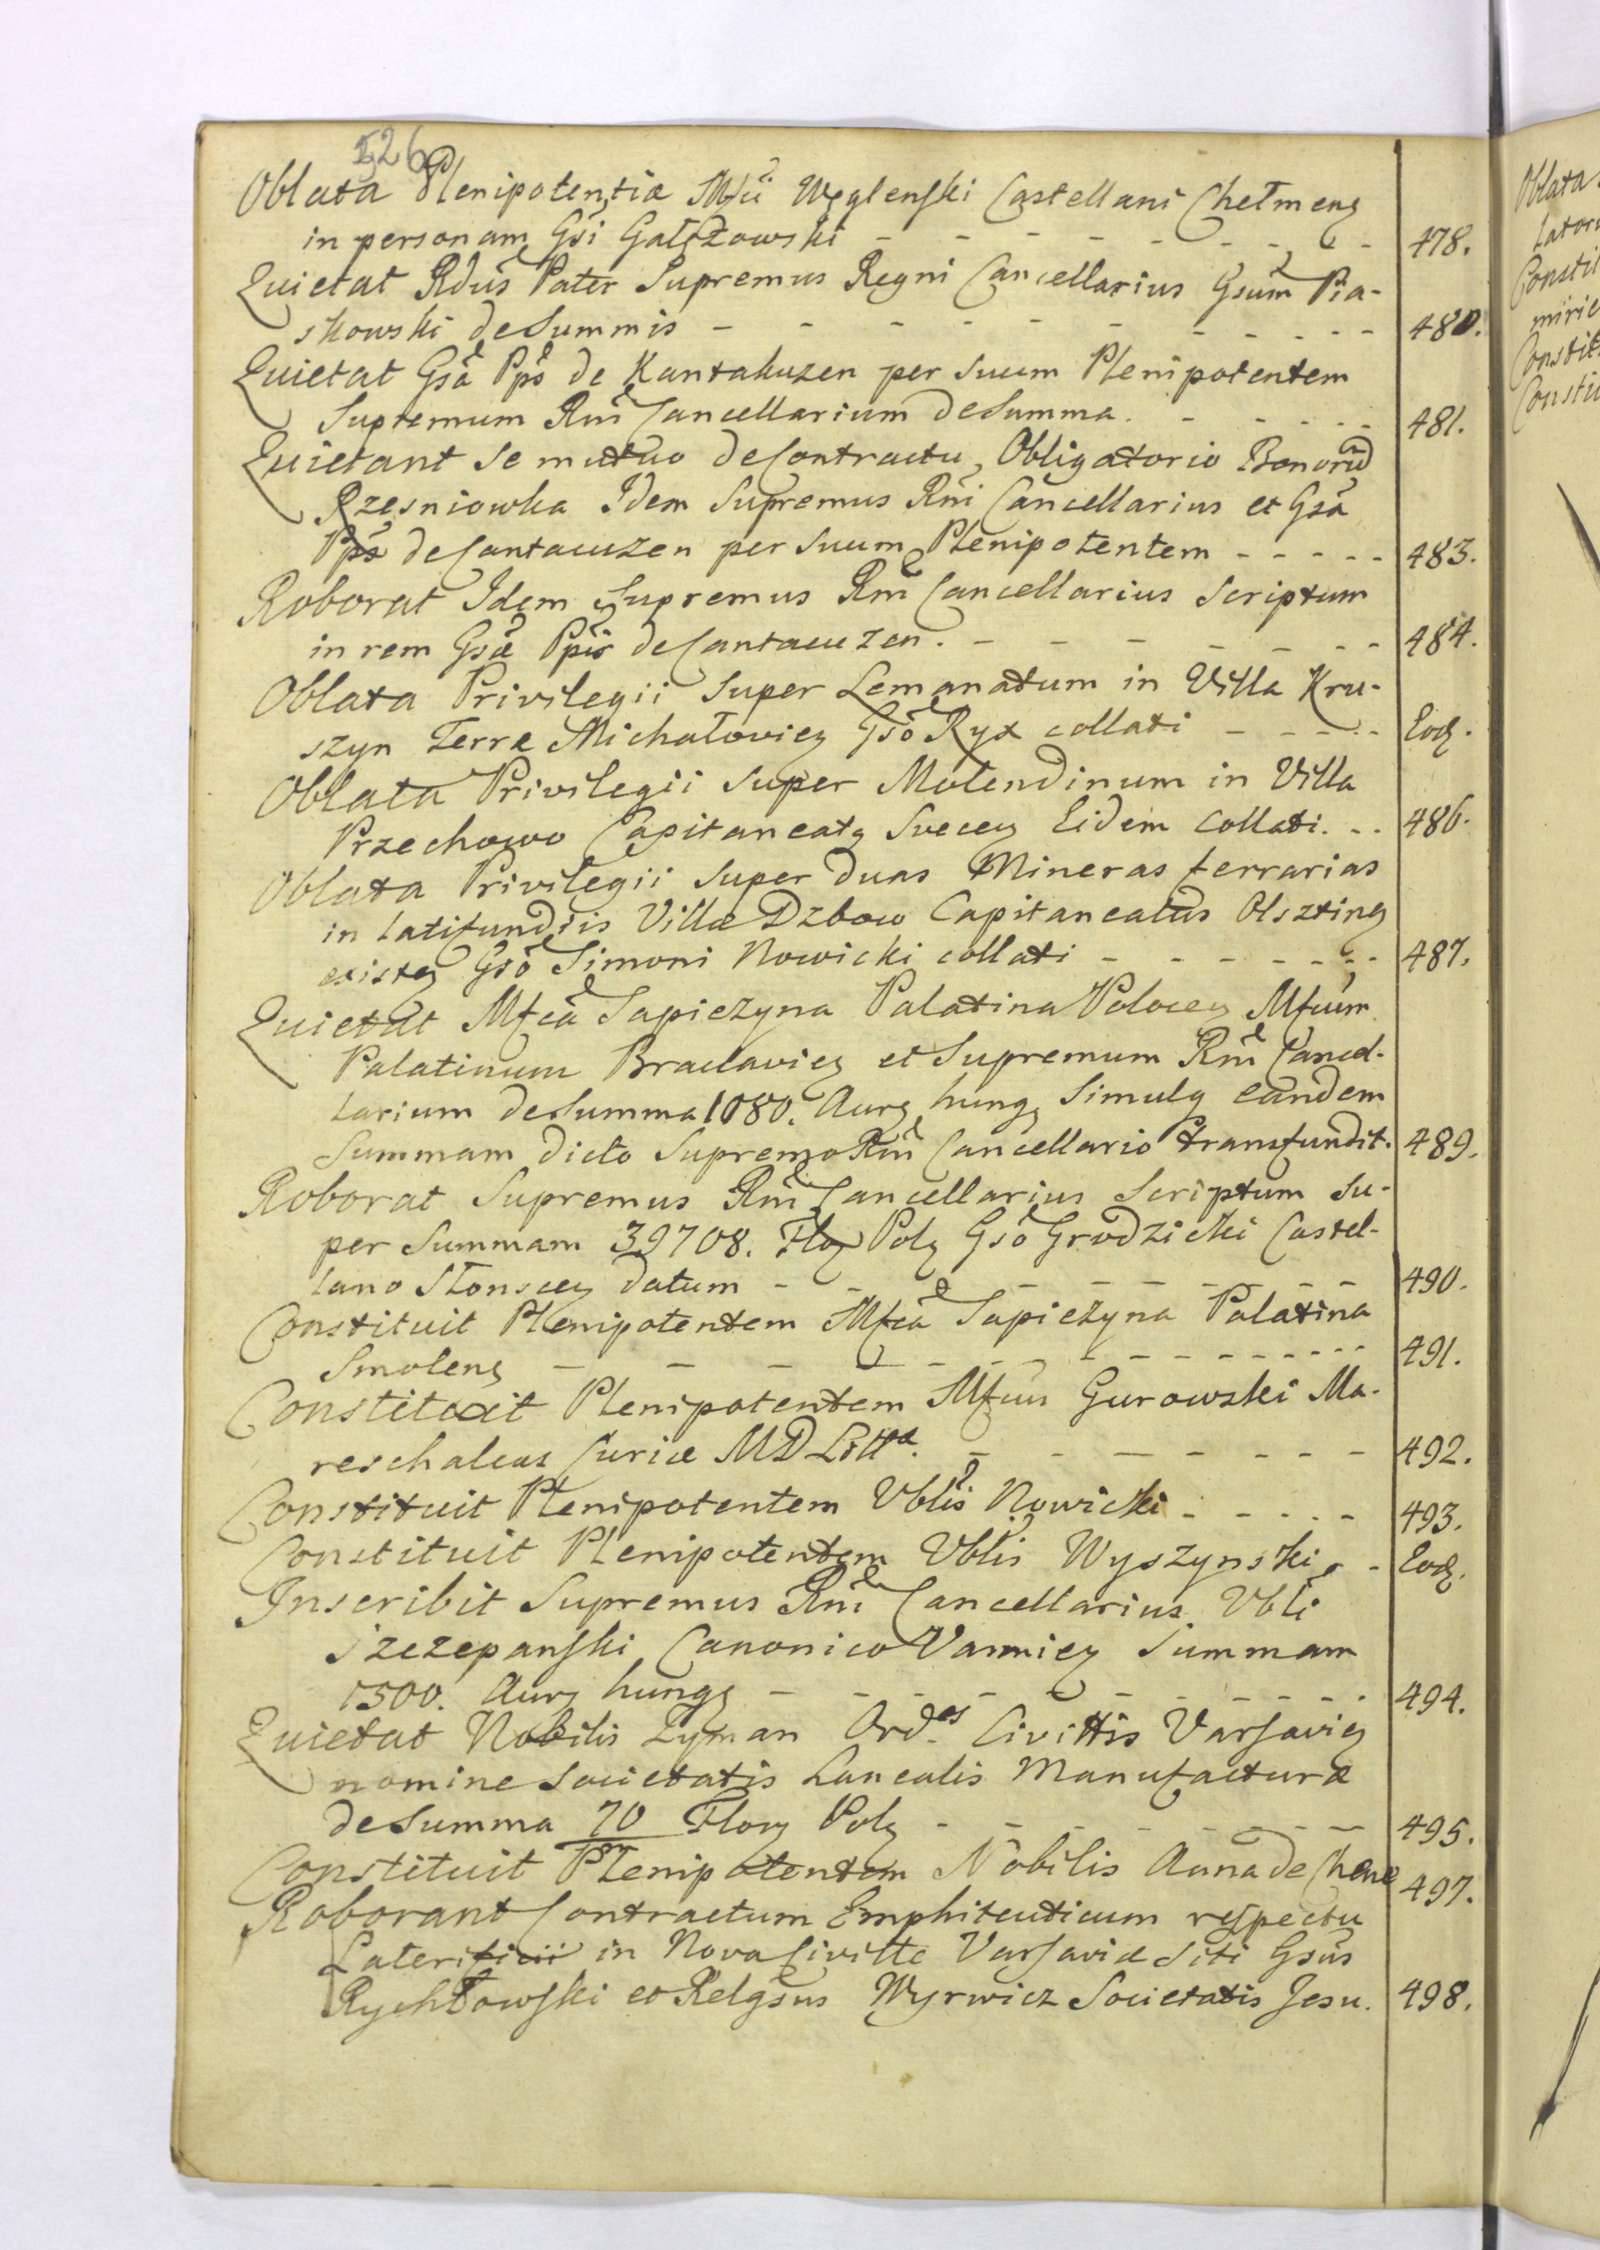 526
Oblata Plenipotentiæ Mfci Węglenſki Castellani Chełmenς
in personam Gsi Gałęzowski - - - - - - - - - 478.
Quietat Rdus Pater Supremus Regni Cancellarius Gsum Pia-
skowski de Summis - - - - - - - - - - 480.
Quietat Gsa Pps de Kantakuzen per suum Plenipotentem
Supremum Rni Cancellarium de Summa. - - - - - 481.
Quietant se mutuo de Contractu Obligatorio Bonorũ
Rzesniowka Idem Supremus Rni Cancellarius et Gsa
Ppsa de Cantacuzen per suum Plenipotentem - - - - - 483.
Roborat Idem Supremus Rni Cancellarius Scriptum
in rem Gsæ Ppis de Cantacuzen. - - - - - - - 484.
Oblata Privilegii super Lemanatum in Villa Kru-
szyn Terræ Michałovienς Gso Ryx collati - - - - - Eodς.
Oblata Privilegii super Molendinum in Villa
Przechowo Capitaneatς Svecenς Eidem collati. - - 486.
Oblata Privilegii super duas Mineras ferrarias
in latifundiis Villæ Dzbow Capitaneatus Olsztinς
existς Gso Simoni Nowicki collati - - - - - - - 487.
Quietat Mfca Sapiezyna Palatina Polocenς Mfcum
Palatinum Braclavienς et Supremum Rni Cancel-
larium de Summa 1080. Aurς hungς simulς eandem
Summam dicto Supremo Rni Cancellario transfundit. 489.
Roborat Supremus Rni Cancellarius Scriptum su-
per Summam 39708. Floς Polς Gso Grodzicki Castel-
lano Słonscenς datum - - - - - - - - - 490.
Constituit Plenipotentem Mfca Sapiezyna Palatina
Smolenς - - - - - - - - - - - - - - 491.
Constituit Plenipotentem Mfcus Gurowski Ma-
reschalcus Curiæ MD Litt. - - - - - - - - 492.
Constituit Plenipotentem Vblis Nowicki - - - - - 493.
Constituit Plenipotentem Vblis Wyszynski, - Eodς.
Inscribit Supremus Rni Cancellarius Vbli
Szczepanſki Canonico Varmienς Summam
1500. Aurς hungς - - - - - - - - - - 494.
Quietat Nobilis Zyman Ord. Civittis Varſavienς
nomine Societatis Lanealis Manufacturæ
de Summa 70 Florς Polς - - - - - - - - 495.
Constituit Plenipotentem Nobilis Anna de Chene 497.
Roborant Contractum Emphiteuticum reſpectu
Laterificii in Nova Civitte Varſaviæ siti Gsus
Rychłowſki et Relgsus Wyrwicz Societatis Jesu. 498.